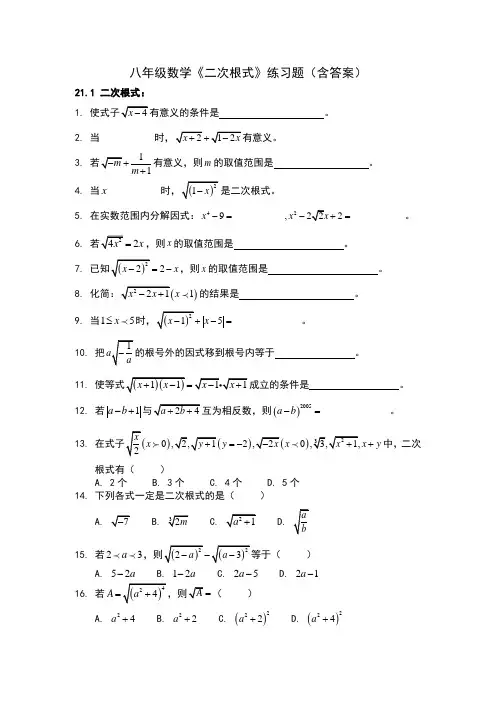 八年级数学《二次根式》练习题（含答案）
21.1 二次根式：
1. 使式子√(x-4)有意义的条件是 。
2. 当 时，√(x+2)+√(1-2x)有意义。
3. 若√(-m)+1/(m+1)有意义，则m的取值范围是 。
4. 当x 时，√((1-x)²)是二次根式。
5. 在实数范围内分解因式：x⁴-9= ,x²-2√2x+2= 。
6. 若√(4x²)=2x，则x的取值范围是 。
7. 已知√((x-2)²)=2-x，则x的取值范围是 。
8. 化简：√(x²-2x+1)(x≺1)的结果是 。
9. 当1≤x≺5时，√((x-1)²)+|x-5|= 。
10. 把a√(-1/a)的根号外的因式移到根号内等于 。
11. 使等式√((x+1)(x-1))=√(x-1)•√(x+1)成立的条件是 。
12. 若|a-b+1|与√(a+2b+4)互为相反数，则(a-b)²⁰⁰⁵= 。
13. 在式子√(x/2)(x≻0),√2,√(y+1)(y=-2),√(-2x)(x≺0),∛3,√(x²+1),x+y中，二次
根式有（ ）
A. 2个 B. 3个 C. 4个 D. 5个
14. 下列各式一定是二次根式的是（ ）
A. √(-7) B. ∛(2m) C. √(a²+1) D. √(a/b)
15. 若2≺a≺3，则√((2-a)²)-√((a-3)²)等于（ ）
A. 5-2a B. 1-2a C. 2a-5 D. 2a-1
16. 若A=√((a²+4)⁴)，则√A=（ ）
A. a²+4 B. a²+2 C. (a²+2)² D. (a²+4)²